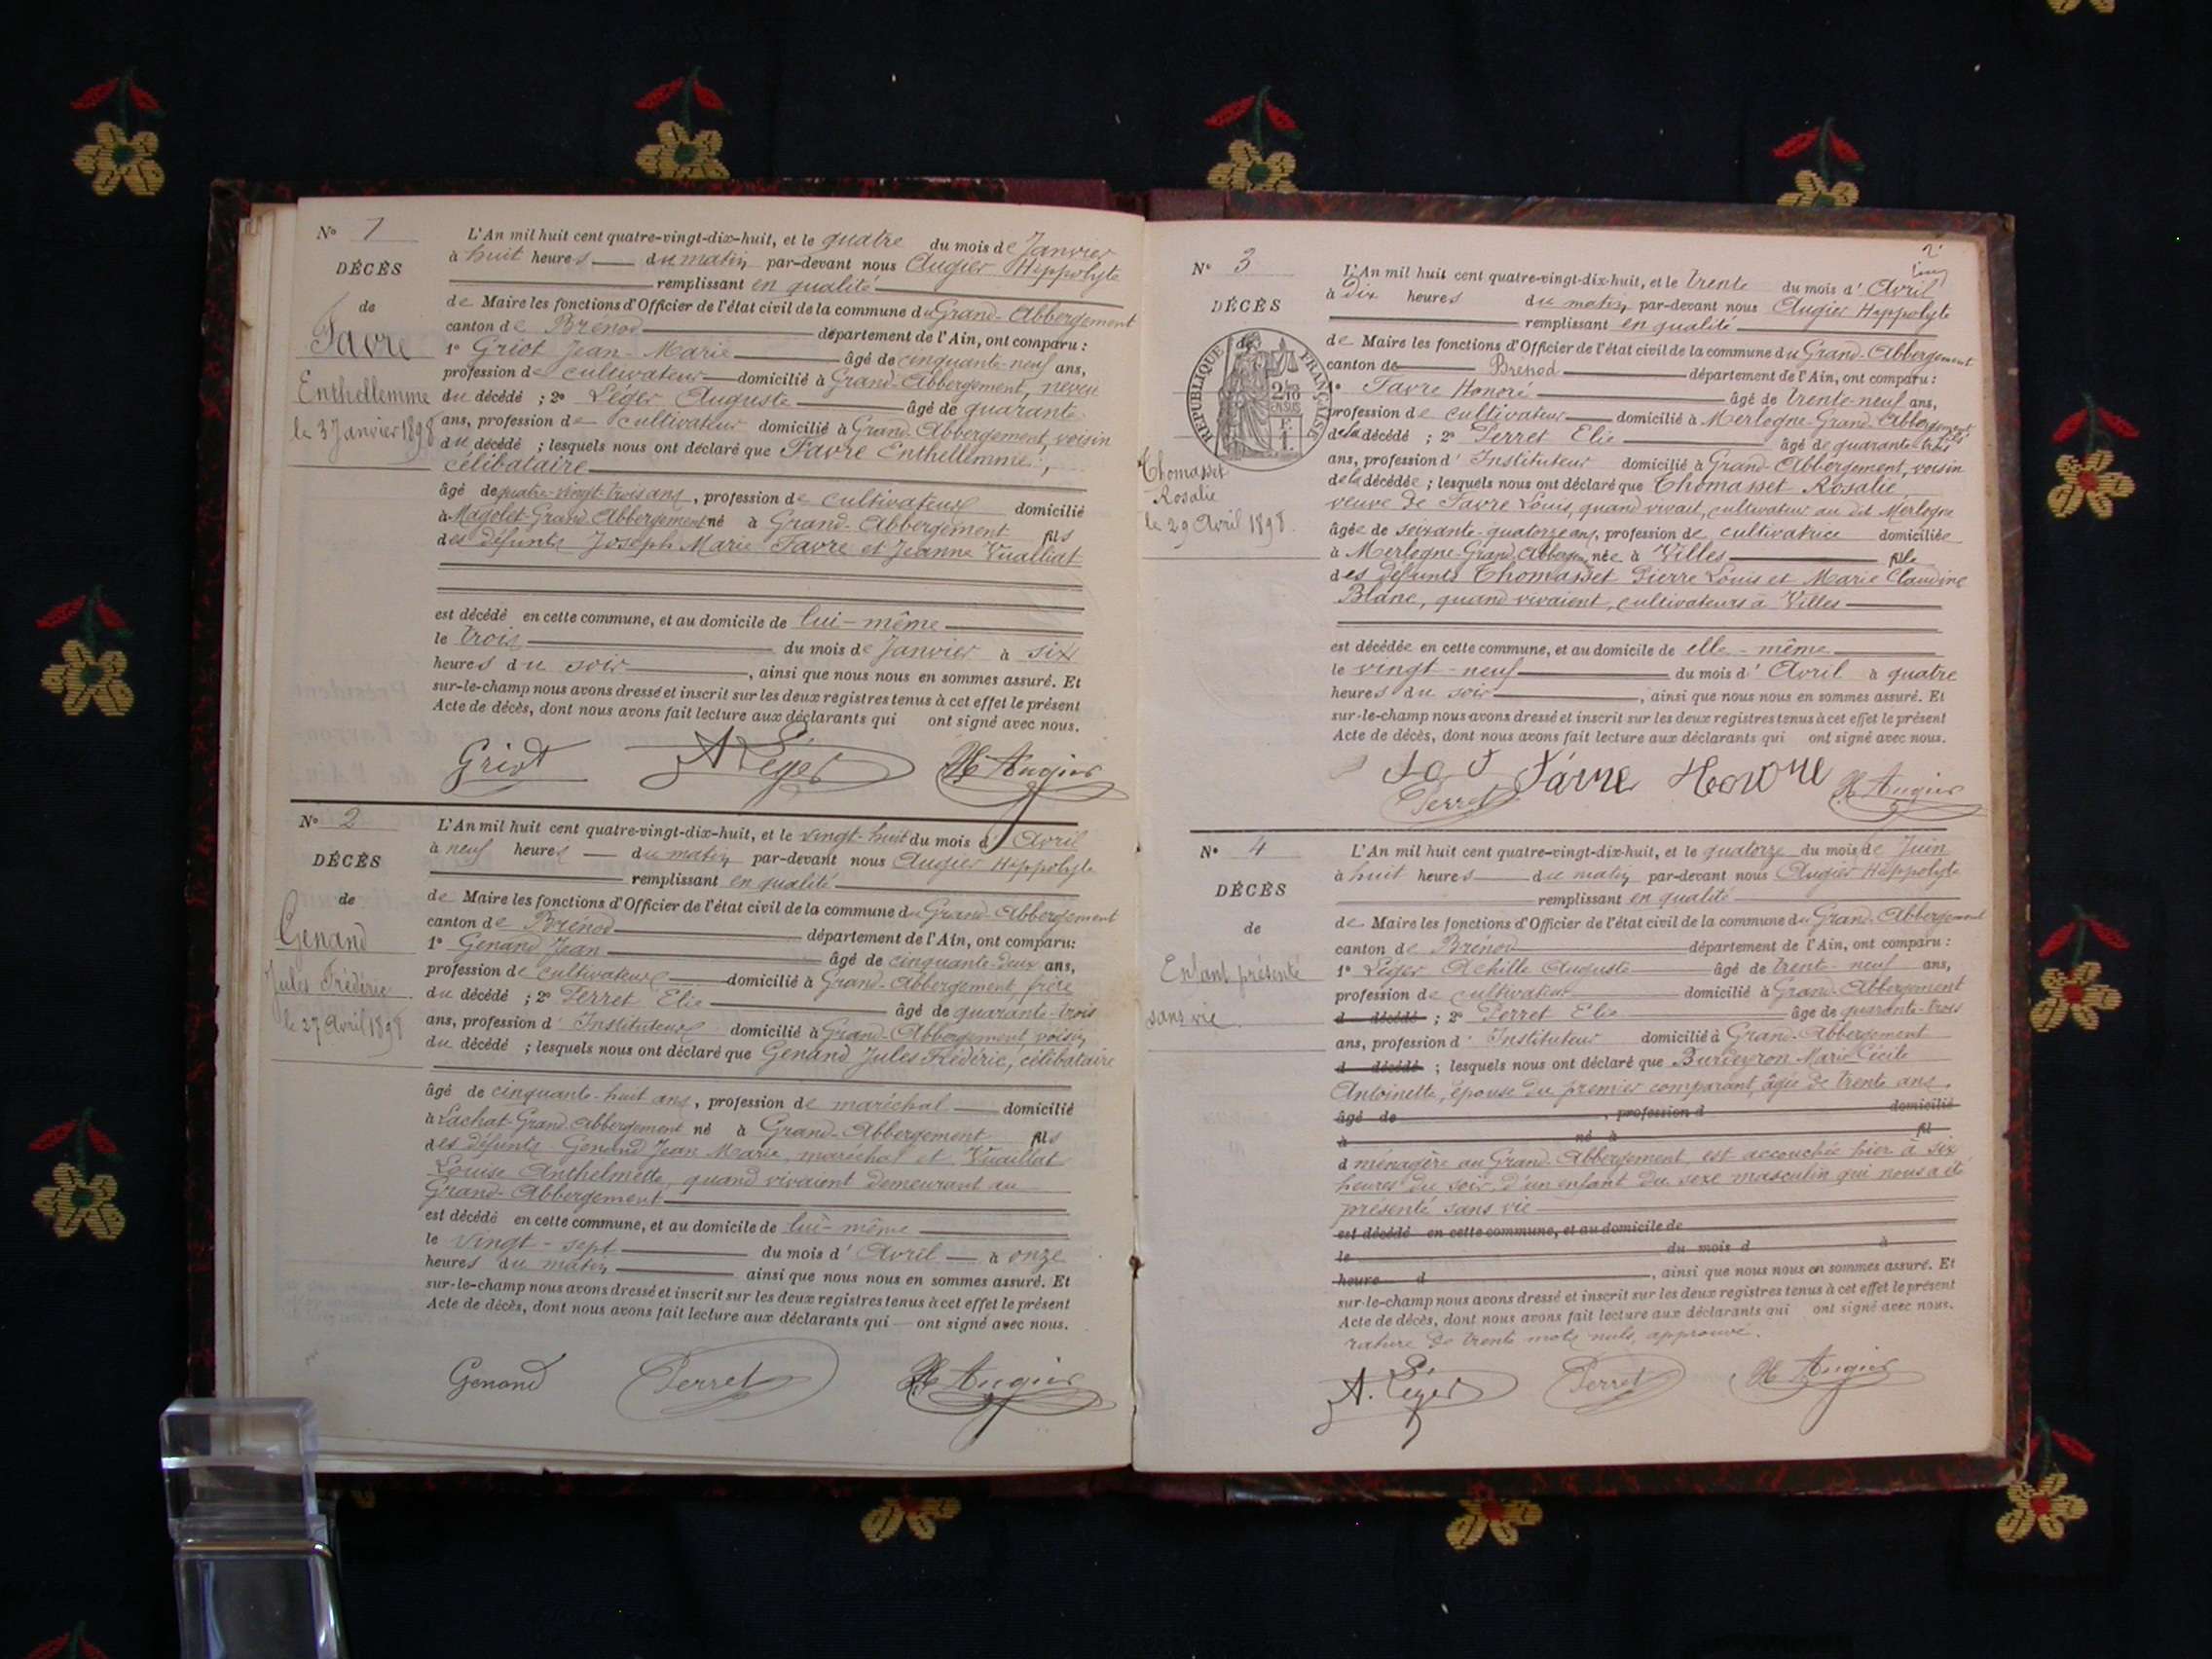 N° 1
DÉCÈS
de
Favre
Enthellemme
le 3 Janvier 1898
L'An mil huit cent quatre-vingt-dix-huit, et le quatre du mois de Janvier
à huit heures du matin par-devant nous Augier Hippolyte
remplissant en qualité
de Maire les fonctions d'Officier de l'état civil de la commune du Grand-Abbergement
canton de Brénod département de l'Ain, ont comparu :
1° Griot Jean-Marie âgé de cinquante-neuf ans,
profession de cultivateur domicilié à Grand-Abbergement, neveu
du décédé ; 2° Léger Auguste âgé de quarante
ans, profession de cultivateur domicilié à Grand-Abbergement, voisin
du décédé ; lesquels nous ont déclaré que Favre Enthellemme,
célibataire
âgé de quatre-vingt-trois ans, profession de cultivateur domicilié
à Magolet-Grand-Abbergement né à Grand-Abbergement fils
des défunts Joseph Marie Favre et Jeanne Vuailliat
est décédé en cette commune, et au domicile de lui-même
le trois du mois de Janvier à six
heures du soir, ainsi que nous nous en sommes assuré. Et
sur-le-champ nous avons dressé et inscrit sur les deux registres tenus à cet effet le présent
Acte de décès, dont nous avons fait lecture aux déclarants qui ont signé avec nous.
Griot A Léger H Augier
N° 2
DÉCÈS
de
Genand
Jules Frédéric
le 27 Avril 1898
L'An mil huit cent quatre-vingt-dix-huit, et le vingt-huit du mois d' Avril
à neuf heures du matin par-devant nous Augier Hippolyte
remplissant en qualité
de Maire les fonctions d'Officier de l'état civil de la commune du Grand-Abbergement
canton de Brénod département de l'Ain, ont comparu:
1° Genand Jean âgé de cinquante-deux ans,
profession de cultivateur domicilié à Grand-Abbergement, frère
du décédé ; 2° Perret Elie âgé de quarante-trois
ans, profession d' Instituteur domicilié à Grand-Abbergement voisin
du décédé ; lesquels nous ont déclaré que Genand Jules Frédéric, célibataire
âgé de cinquante-huit ans, profession de maréchal domicilié
à Lachat-Grand-Abbergement né à Grand-Abbergement fils
des défunts Genand Jean Marie, maréchal et Vuaillat
Louise Anthelmette, quand vivaient demeurant au
Grand-Abbergement
est décédé en cette commune, et au domicile de lui-même
le vingt-sept du mois d' Avril à onze
heures du matin ainsi que nous nous en sommes assuré. Et
sur-le-champ nous avons dressé et inscrit sur les deux registres tenus à cet effet le présent
Acte de décès, dont nous avons fait lecture aux déclarants qui ont signé avec nous.
Genand Perret H Augier
2
N° 3
DÉCÈS
de
RÉPUBLIQUE FRANÇAISE
2/10 EN SUS
Thomasset
Rosalie
le 29 Avril 1898.
L'An mil huit cent quatre-vingt-dix-huit, et le trente du mois d' Avril
à Dix heures du matin par-devant nous Augier Hippolyte
remplissant en qualité
de Maire les fonctions d'Officier de l'état civil de la commune du Grand-Abbergement
canton de Brénod département de l'Ain, ont comparu :
1° Favre Honoré âgé de trente-neuf ans,
profession de cultivateur domicilié à Merlogne-Grand-Abbergement
de la décédé ; 2° Perret Elie âgé de quarante-trois
ans, profession d' Instituteur domicilié à Grand-Abbergement, voisin
de la décédée ; lesquels nous ont déclaré que Thomasset Rosalie,
veuve de Favre Louis, quand vivait, cultivateur au dit Merlogne
âgée de soixante-quatorze ans, profession de cultivatrice domiciliée
à Merlogne-Grand-Abbergem, née à Villes fille
des défunts Thomasset Pierre Louis et Marie Claudine
Blanc, quand vivaient, cultivateurs à Villes
est décédée en cette commune, et au domicile de elle-même
le vingt-neuf du mois d' Avril à quatre
heures du soir, ainsi que nous nous en sommes assuré. Et
sur-le-champ nous avons dressé et inscrit sur les deux registres tenus à cet effet le présent
Acte de décès, dont nous avons fait lecture aux déclarants qui ont signé avec nous.
Perret Favre Honoré H Augier
N° 4
DÉCÈS
de
Enfant présenté
sans vie.
L'An mil huit cent quatre-vingt-dix-huit, et le quatorze du mois de Juin
à huit heures du matin par-devant nous Augier Hippolyte
remplissant en qualité
de Maire les fonctions d'Officier de l'état civil de la commune du Grand-Abbergement
canton de Brénod département de l'Ain, ont comparu :
1° Léger Achille Auguste âgé de trente-neuf ans,
profession de cultivateur domicilié à Grand-Abbergement
d décédé ; 2° Perret Elie âgé de quarante-trois
ans, profession d' Instituteur domicilié à Grand-Abbergement
d décédé ; lesquels nous ont déclaré que Burdeyron Marie Cécile
Antoinette, épouse du premier comparant, âgée de trente ans,
âgé de , profession d domicilié
à né à fil
d ménagère au Grand-Abbergement, est accouchée hier à six
heures du soir, d'un enfant du sexe masculin qui nous a été
présenté sans vie
est décédé en cette commune, et au domicile de
le du mois d à
heure d , ainsi que nous nous en sommes assuré. Et
sur-le-champ nous avons dressé et inscrit sur les deux registres tenus à cet effet le présent
Acte de décès, dont nous avons fait lecture aux déclarants qui ont signé avec nous.
rature de trente mots nuls, approuvé.
A. Léger Perret H Augier